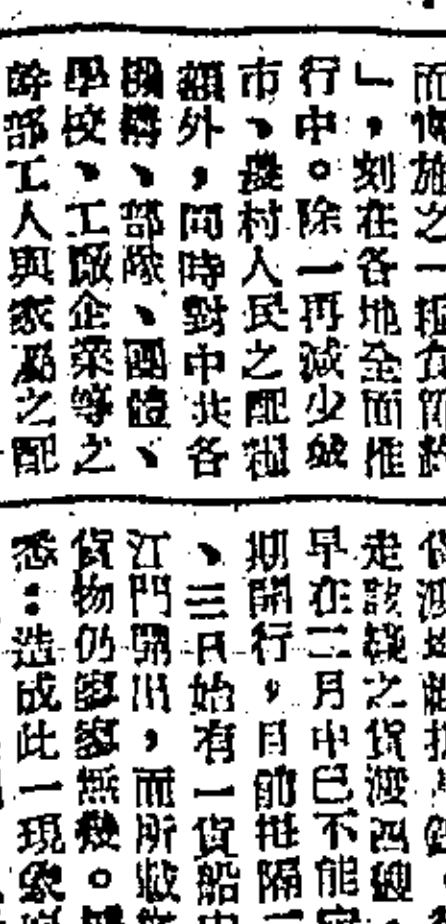 而實施之一種
」，刻在各地全面推
行中。除一再減少城
市、農村人民之配糧
額外，同時對中共各
機構、部隊、團體、
學校、工廠企業等之
幹部工人與家屬之配
走該綫之貨渡四艘
早在二月中巳不能
期開行，目前推隔
、三日始有一貨船
江門開川，而所載
貨物仍寥寥無幾。
悉：造成此一現象